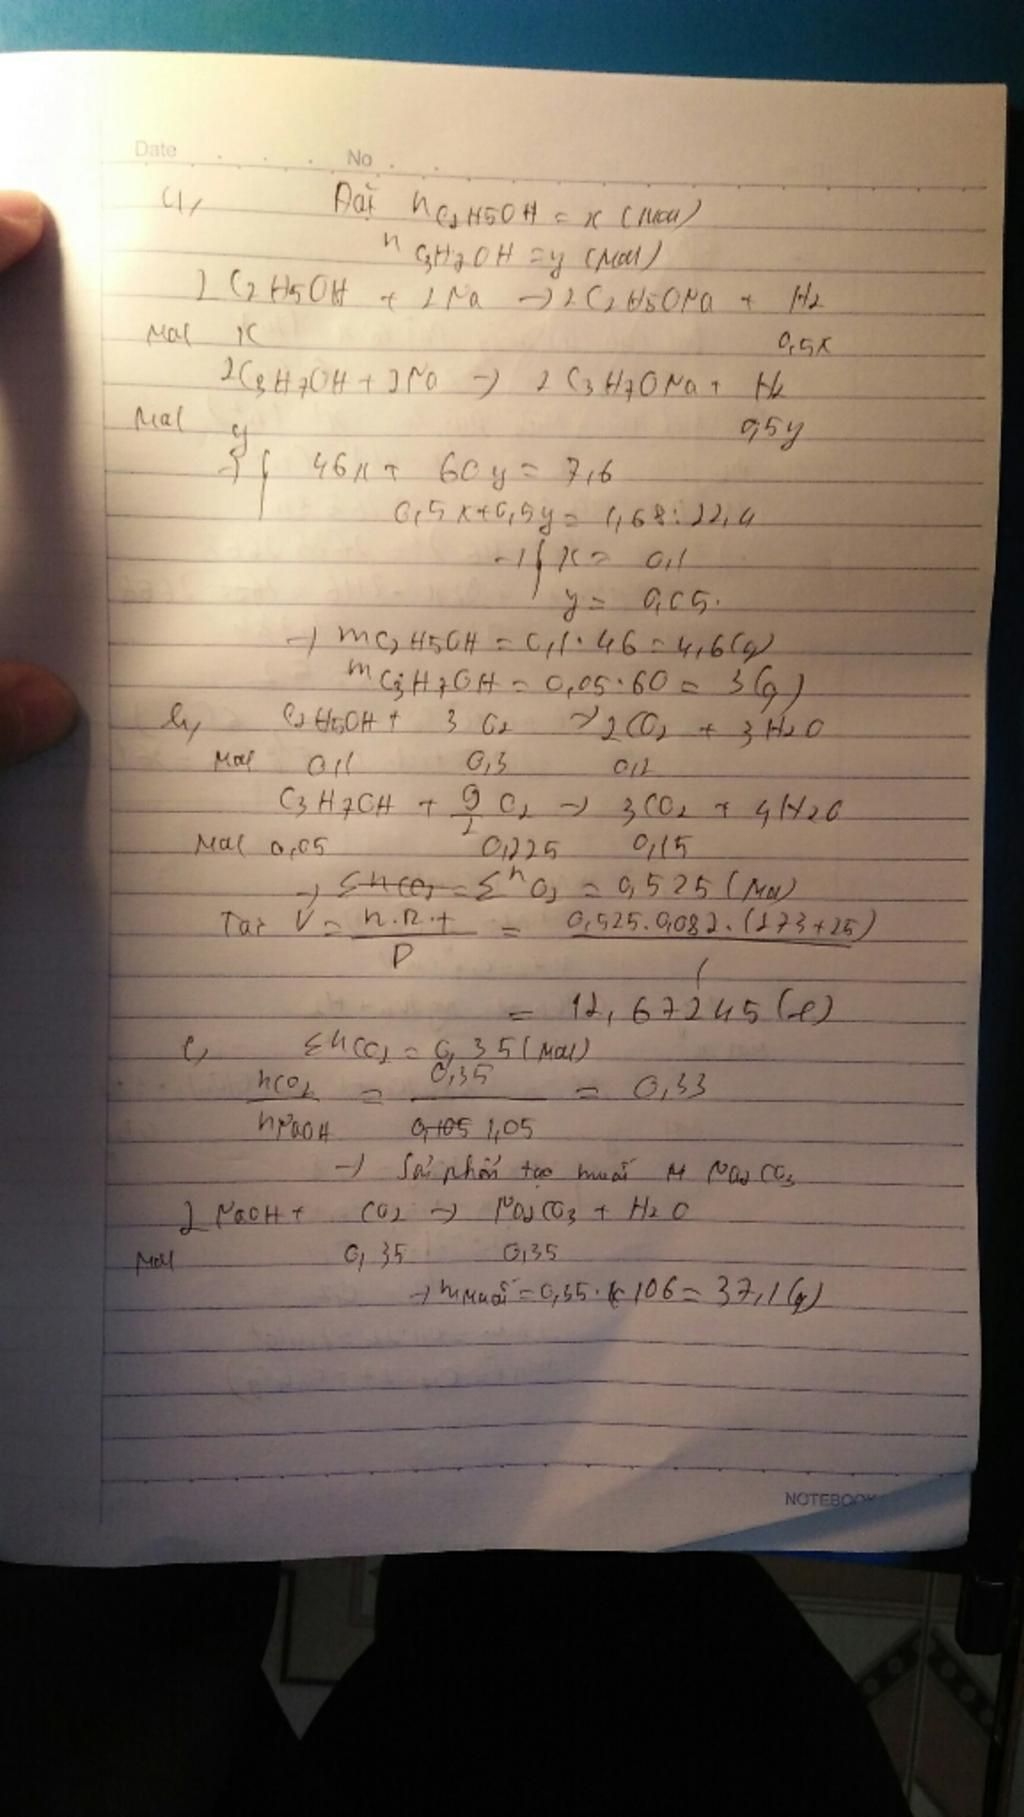 Date No
a, Đặt nC2H5OH = x (mol)
nC3H7OH = y (mol)
2C2H5OH + 2Na → 2C2H5ONa + H2
Mol x 0,5x
2C3H7OH + 2Na → 2C3H7ONa + H2
Mol y 0,5y
→ { 46x + 60y = 7,6
0,5x + 0,5y = 1,68 : 22,4
→ { x = 0,1
y = 0,05.
→ mC2H5OH = 0,1 . 46 = 4,6 (g)
mC3H7OH = 0,05 . 60 = 3 (g)
b, C2H5OH + 3O2 → 2CO2 + 3H2O
Mol 0,1 0,3 0,2
C3H7OH + 9/2 O2 → 3CO2 + 4H2O
Mol 0,05 0,225 0,15
→ ΣnCO2 = ΣnO2 = 0,525 (mol)
V = n.R.t / P = 0,525.0,082.(273+25) / 1
= 12,67245 (l)
c, ΣnCO2 = 0,35 (mol)
nCO2 / nNaOH = 0,35 / 0,105 1,05 = 0,33
→ tạo muối Na2CO3
2NaOH + CO2 → Na2CO3 + H2O
Mol 0,35 0,35
→ mmuối = 0,35 . 106 = 37,1 (g)
NOTEBOOK